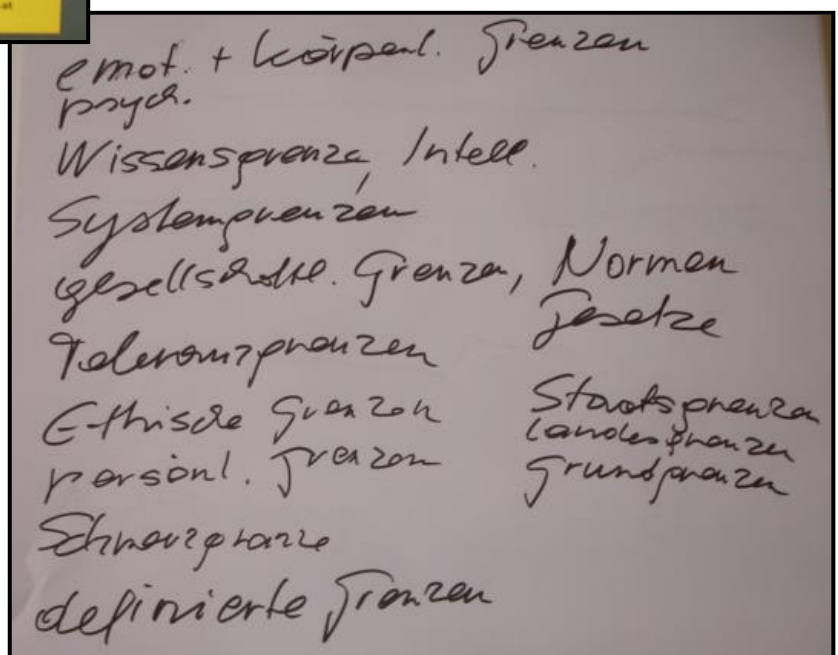 .at
emot. + körperl. Grenzen
psych.
Wissensgrenze, Intell.
Systemgrenzen
gesellschaftl. Grenzen, Normen
Gesetze
Toleranzgrenzen
Ethische Grenzen
persönl. Grenzen
Staatsgrenzen
Landesgrenzen
Grundgrenzen
Schmerzgrenze
definierte Grenzen